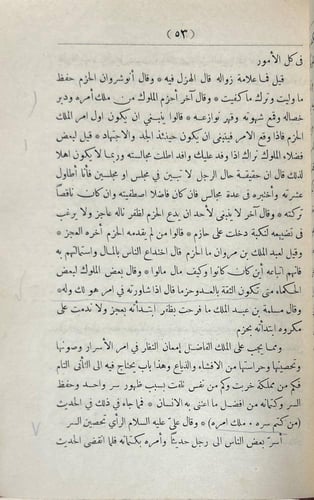 (٥٣)
فى كل الأمور
قيل فما علامة زواله قال الهزل فيه * وقال أنوشروان الحزم حفظ
ما وليت وترك ما كفيت * وقال آخر أحزم الملوك من ملك أمره ودبر
خصاله وقمع شهوته وقهر نوازعه * وقالوا ينبغى ان يكون اول امر الملك
الحزم فاذا وقع الامر فينبغى ان يكون حينئذ الجد والاجتهاد * قيل لبعض
فضلاء الملوك نراك اذا وفد عليك وافد اطلت مجالسته وربما لا يكون اهلا
لذلك قال ان حقيقة حال الرجل لا تبين فى مجلس او مجلسين فأنا أطاول
عشرته وأختبره فى عدة مجالس فان كان فاضلا اصطفيته وان كان ناقصاً
تركته * وقال آخر لا ينبغى لأحد ان يدع الحزم لظفر ناله عاجز ولا يرغب
فى تضييعه لنكبة دخلت على حازم * قالوا من لم يقدمه الحزم أخره العجز *
وقيل لعبد الملك بن مروان ما الحزم قال اختداع الناس بالمال واستمالتهم به
فانهم اتباعه أين كان كانوا وكيف مال مالوا * وقال بعض الملوك لبعض
الحكماء متى تكون الثقة بالعدو حزما قال اذا شاورته فى امر هو لك وله *
وقال مسلمة بن عبد الملك ما فرحت بظفر ابتدأته بعجز ولا ندمت على
مكروه ابتدأته بحزم
ومما يجب على الملك الفاضل إمعان النظر فى امر الأسرار وصونها
وتحصينها وحراستها من الافشاء والذياع وهذا باب يحتاج فيه الى التأنى التام
فكم من مملكة خربت وكم من نفس تلفت بسبب ظهور سر واحد وحفظ
السر وكتمانه من افضل ما اعتنى به الانسان * فما جاء فى ذلك فى الحديث
(من كتم سره . ملك امره) * وقال على عليه السلام الرأى تحصين السر
أسر بعض الناس الى رجل حديثاً وأمره بكتمانه فلما انقضى الحديث